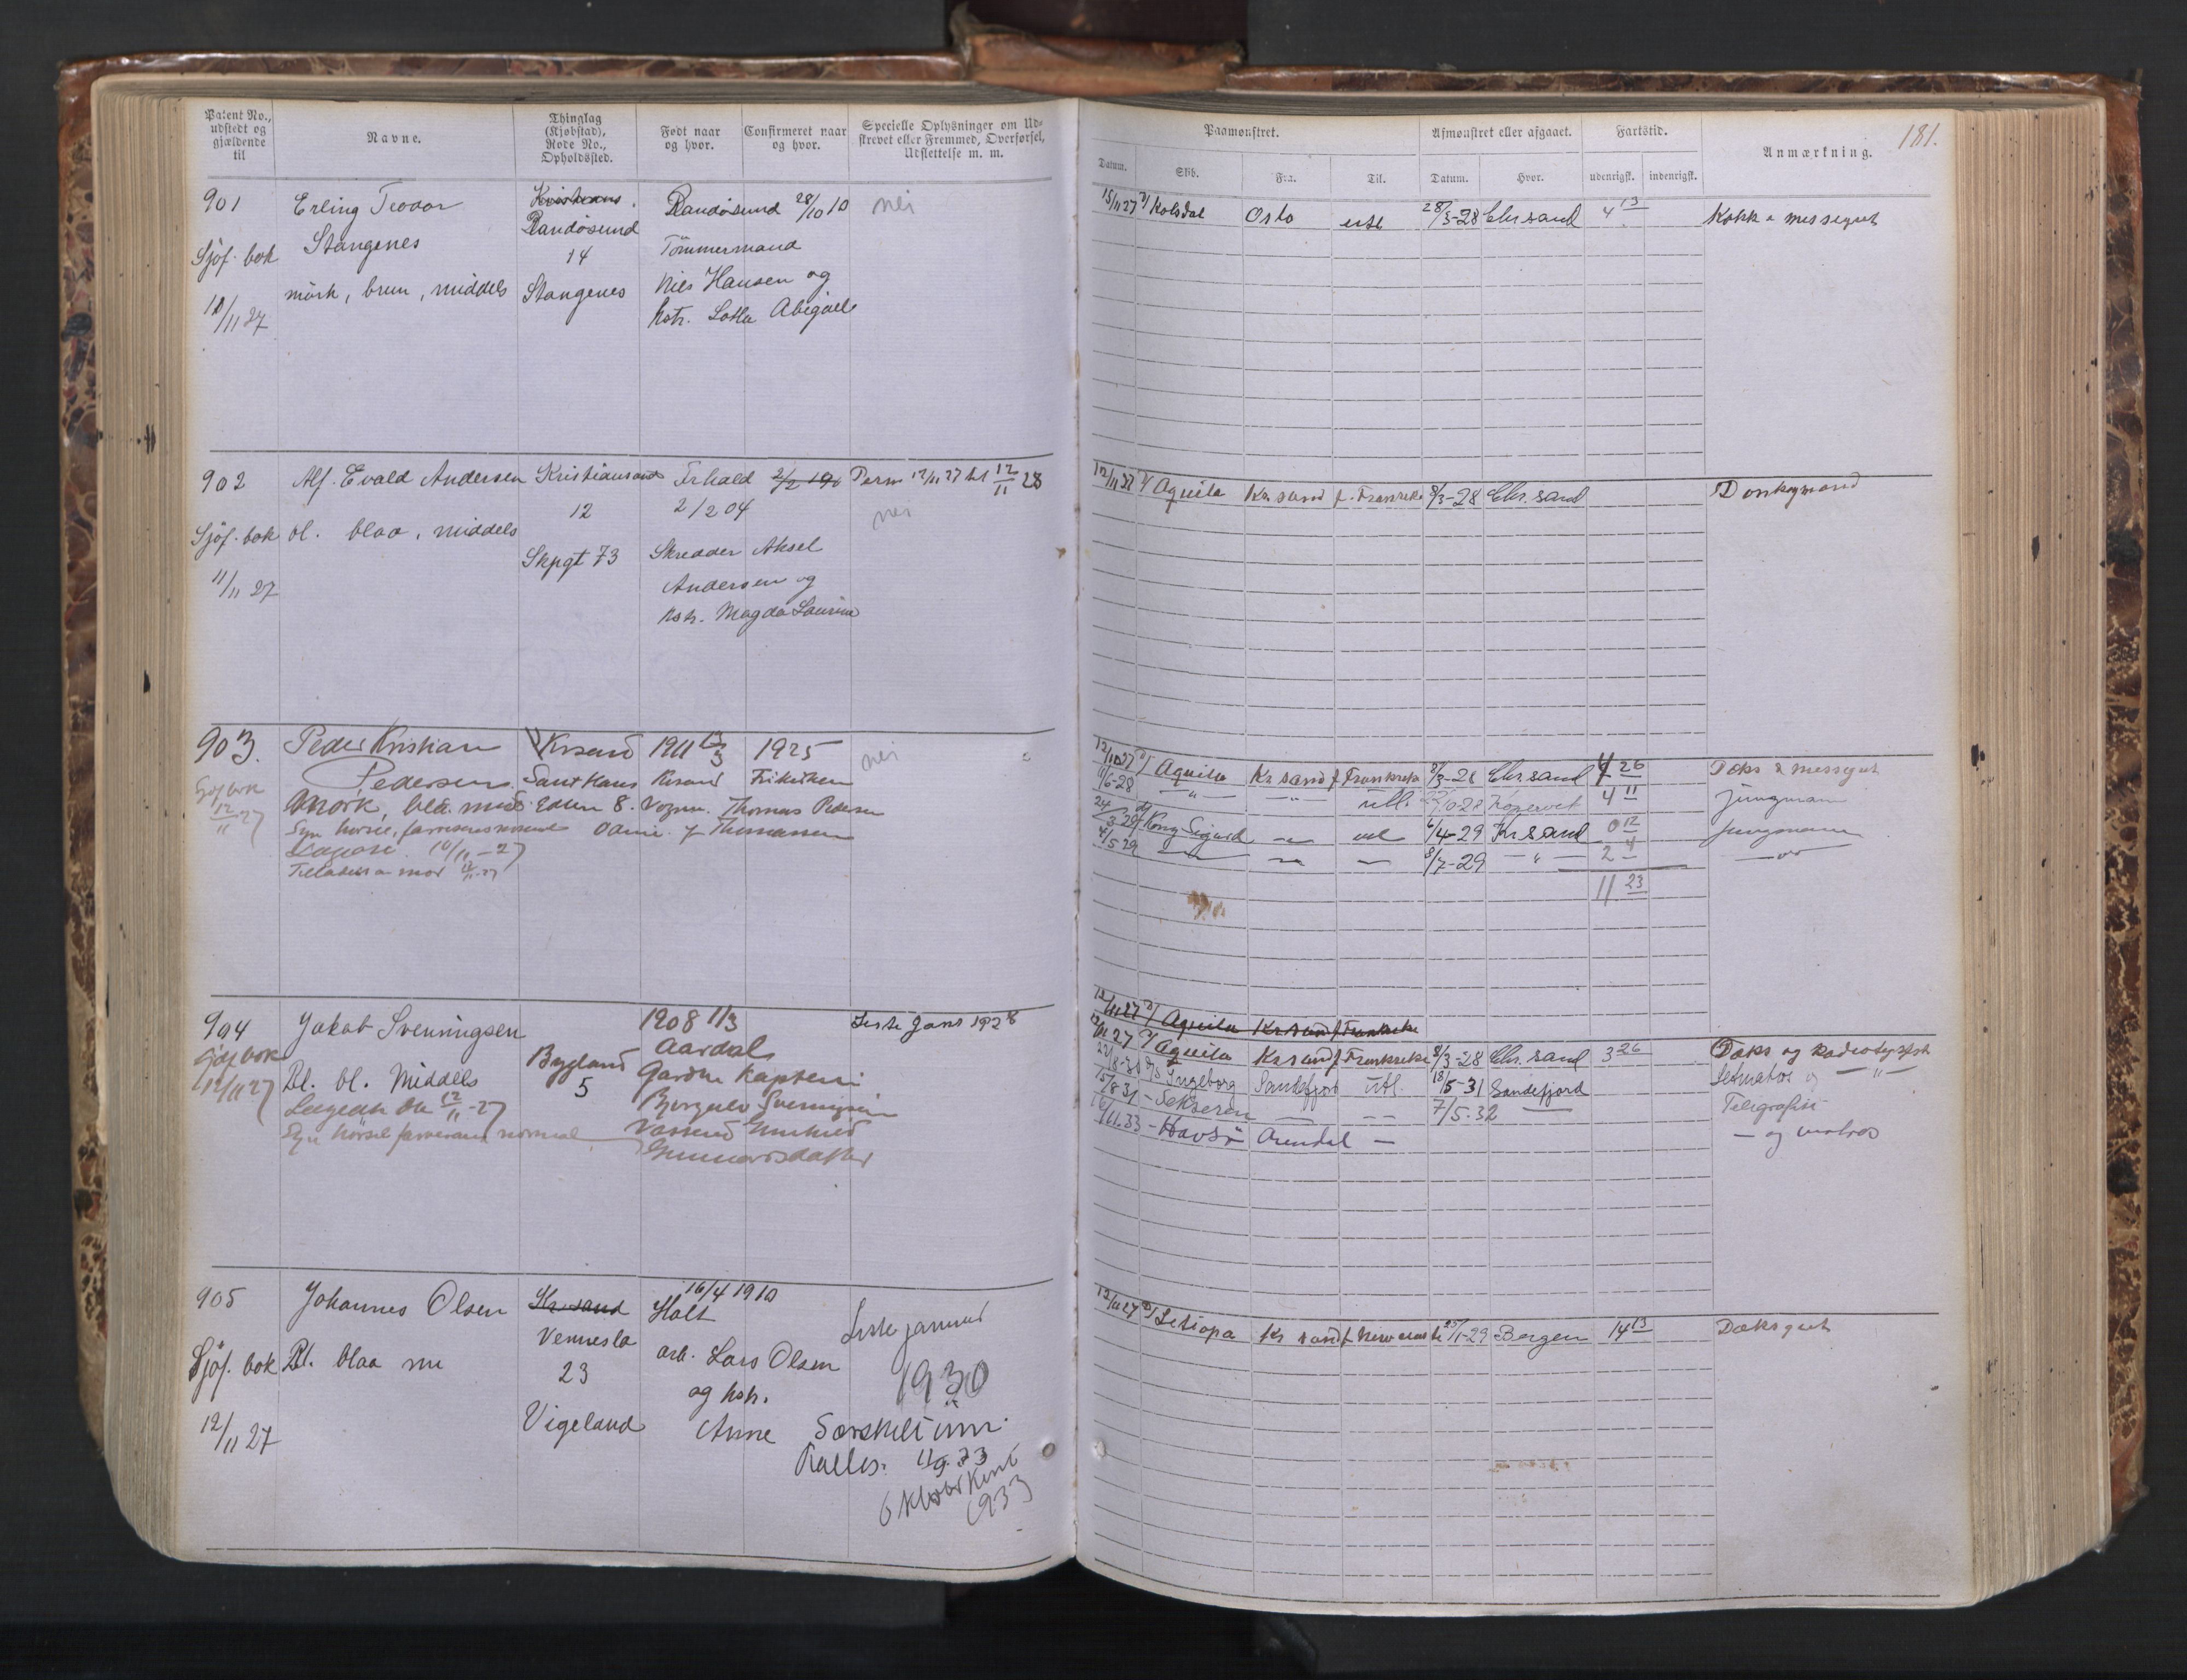 Patent No., udstedt og gjældende til
Navne.
Thinglag (Kjøbstad), Rode No., Opholdssted.
Født naar og hvor.
Confirmeret naar og hvor.
Specielle Oplysninger om Udskrevet eller Fremmed, Overførsel, Udslettelse m. m.
Paamønstret.
Afmønstret eller afgaaet.
Fartstid.
Anmærkning.
181.
Datum.
Skib.
Fra.
Til.
Datum.
Hvor.
udenrigsk.
indenrigsk.
901
Sjöf. bok
10/11 27
Erling Teodor
Stangenes
mörk, brun, middels
Randösund
14
Stangenes
Randösund 28/10 10
Tömmermand
Niels Hansen og
hstr. Lotta Abigael
nei
15/11 27 Kolsdal Oslo utl 28/3-28 Chrsand 4 13 Kokk & messegut
902
Sjöf. bok
11/11 27
Alf. Evald Andersen
bl. blaa, middels
Kristiansand
12
Skpgt 73
2/2 190
2/2 04
Skredder Aksel
Andersen og
hstr. Magda Laurine
Perm 12/11 27 til 12/11 28
nei
12/11 27 Aquila Kr sand f. Frankrike 8/3-28 Chr. sand Donkeymand
903.
Sjöf bok
12/11 27
Peder Kristian
Pedersen
Mörk, blå. mid
Syn hörsel, farvesans normal
10/11-27
Krsand
Sant Hans
8.
1911 13/3
Krsand
1925
Frikirken
Thomas Pedersen
f Thomassen
nei
12/11 27 Aquila Kr sand f Frankrike 8/3-28 Chr. sand 4 26 Dæks & messegut
11/6-28 " " utl. Kopervik 4 11 jungmann
24/3 29 Kong Sigurd — utl 6/4-29 Kr sand 0 12 Jungmann
4/5 29 — — — 8/7-29 — " — 2 4
11 23
904
Sjöf bok
12/11 27
Jakob Svenningsen
Bl. bl. Middels
12/11-27
Syn hörsel farvesans normal
Bygland
5
1908 11/3
Aardal
Kaptein
Liste Jans 1928
12/11 27 Aquila Kr sand f Frankrike
12/11 27 Aquila Kr sand f Frankrike 8/3-28 Chr. sand 3 26 Dæks og Radiotegrfst
22/8-30 D/S Ingeborg Sandefjord utl. 18/5-31 Sandefjord Letmatros og — " —
15/8 31 - Sekseren — — 7/5.32 — Telegrafist
16/11.33 - Havsö Arendal — — og matros
905
Sjöf. bok
12/11 27
Johannes Olsen
Bl. blaa mi
Kr. sand
Vennesla
23
Vigeland
16/4 1910
Holt
arb. Lars Olsen
og hstr.
Anne
Liste januar
1930
1933
12/11 27 Kr sand f Newcastle 25/1-29 Bergen 14 13 Dæksgut